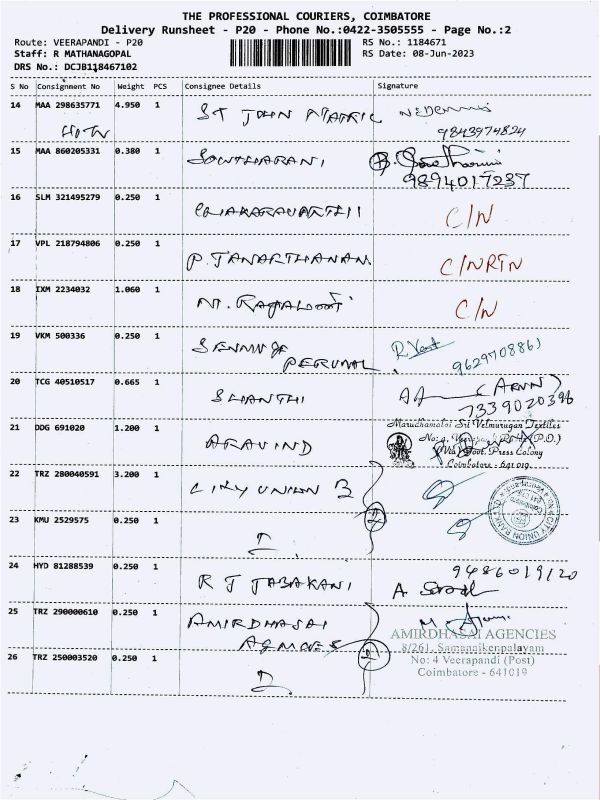 THE PROFESSIONAL COURIERS, COIMBATORE
Delivery Runsheet - P20 - Phone No.:0422-3505555 - Page No.:2
Route: VEERAPANDI - P20
RS No.: 1184671
Staff: R MATHANAGOPAL
RS Date: 08-Jun-2023
DRS No.: DCJB118467102
S No Consignment No Weight PCS Consignee Details Signature
14 MAA 298635771 4.950 1 ST JOHN
9843974824
15 MAA 860205331 0.380 1 SOWTHARANI B.
9894017237
16 SLM 321495279 0.250 1 C/N
17 VPL 218794806 0.250 1 P. JANARTHANAN C/NRTN
18 IXM 2234032 1.060 1 C/N
19 VKM 500336 0.250 1
PERUMAL 9629708861
20 TCG 40510517 0.665 1 SHANTHI (ARUN)
7339020396
21 DDG 691020 1.200 1 ARAVIND
Marudhamalai Sri Velmurugan Textiles
Press Colony
Coimbatore - 641 019.
22 TRZ 280040591 3.200 1 CITY UNION B
23 KMU 2529575 0.250 1
24 HYD 81288539 0.250 1 R J JABAKANI A.
9486019120
25 TRZ 290000610 0.250 1 AMIRDHASAI
AMIRDHASAI AGENCIES
8/261, Samanaikenpalayam
No: 4 Veerapandi (Post)
Coimbatore - 641019
26 TRZ 250003520 0.250 1